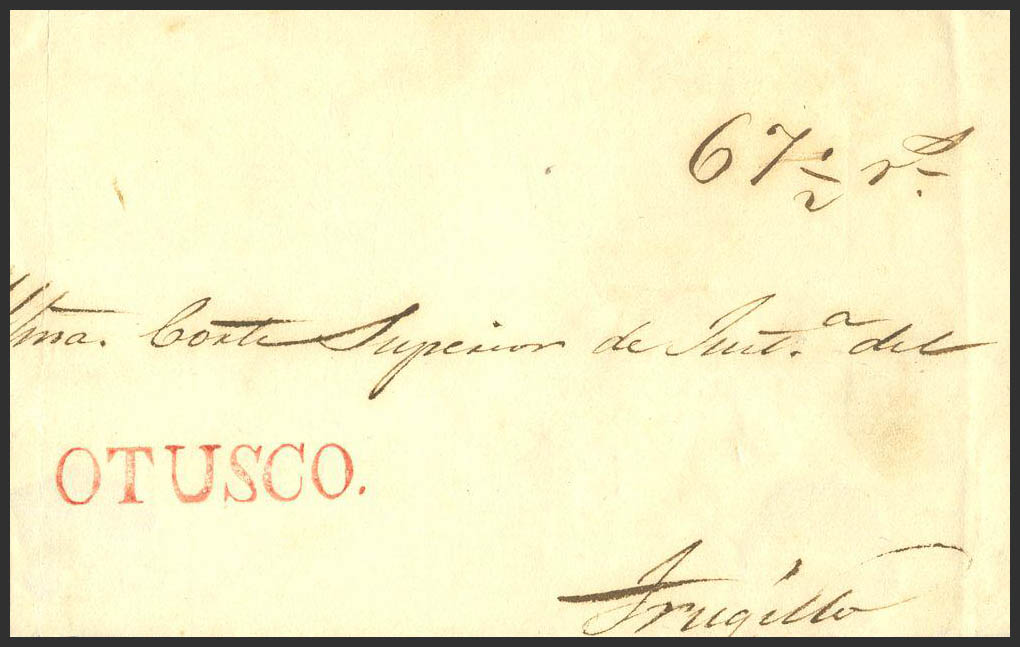 67 1/2 rs.
Iltma. Corte Superior de Just.a del
OTUSCO.
Trugillo